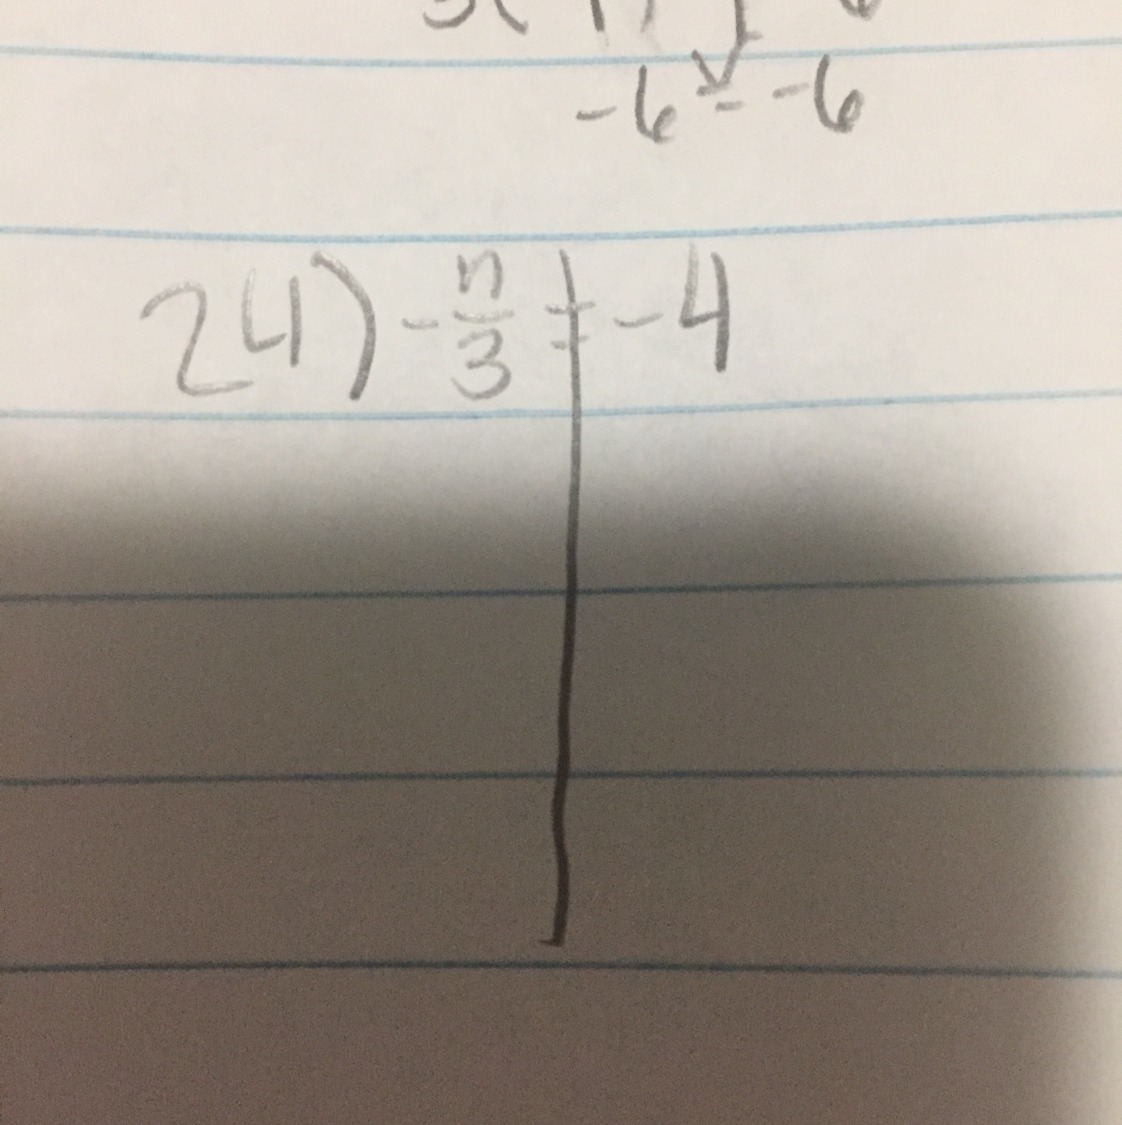 -6 = -6
24) -n/3 = -4